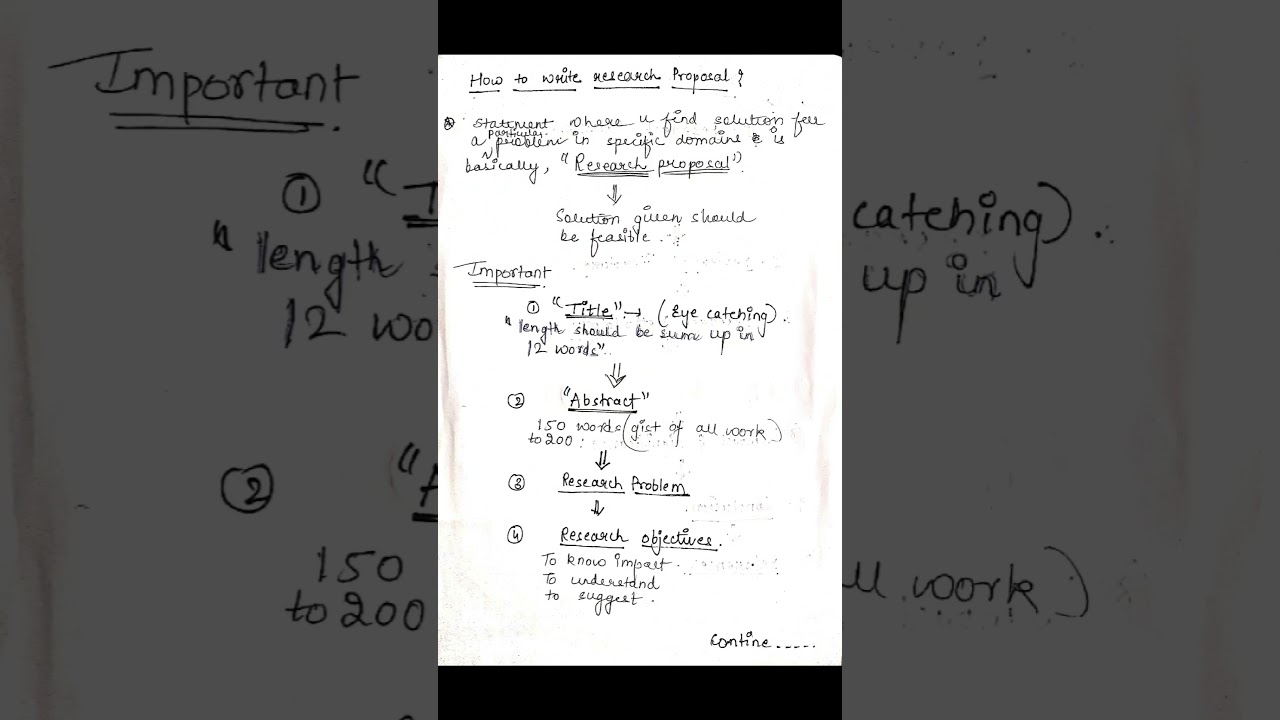 How to write research Proposal ?
Statement where u find solution for
a particular problem in specific domain is
basically, "Research proposal").
⇓
Solution given should
be feasible.
Important
① "Title" → (Eye catching).
"length should be sum up in
12 words".
⇓
② "Abstract"
150 words (gist of all work)
to 200.
⇓
③ Research Problem
⇓
④ Research objectives.
To know impact.
To understand
to suggest.
Contine-----